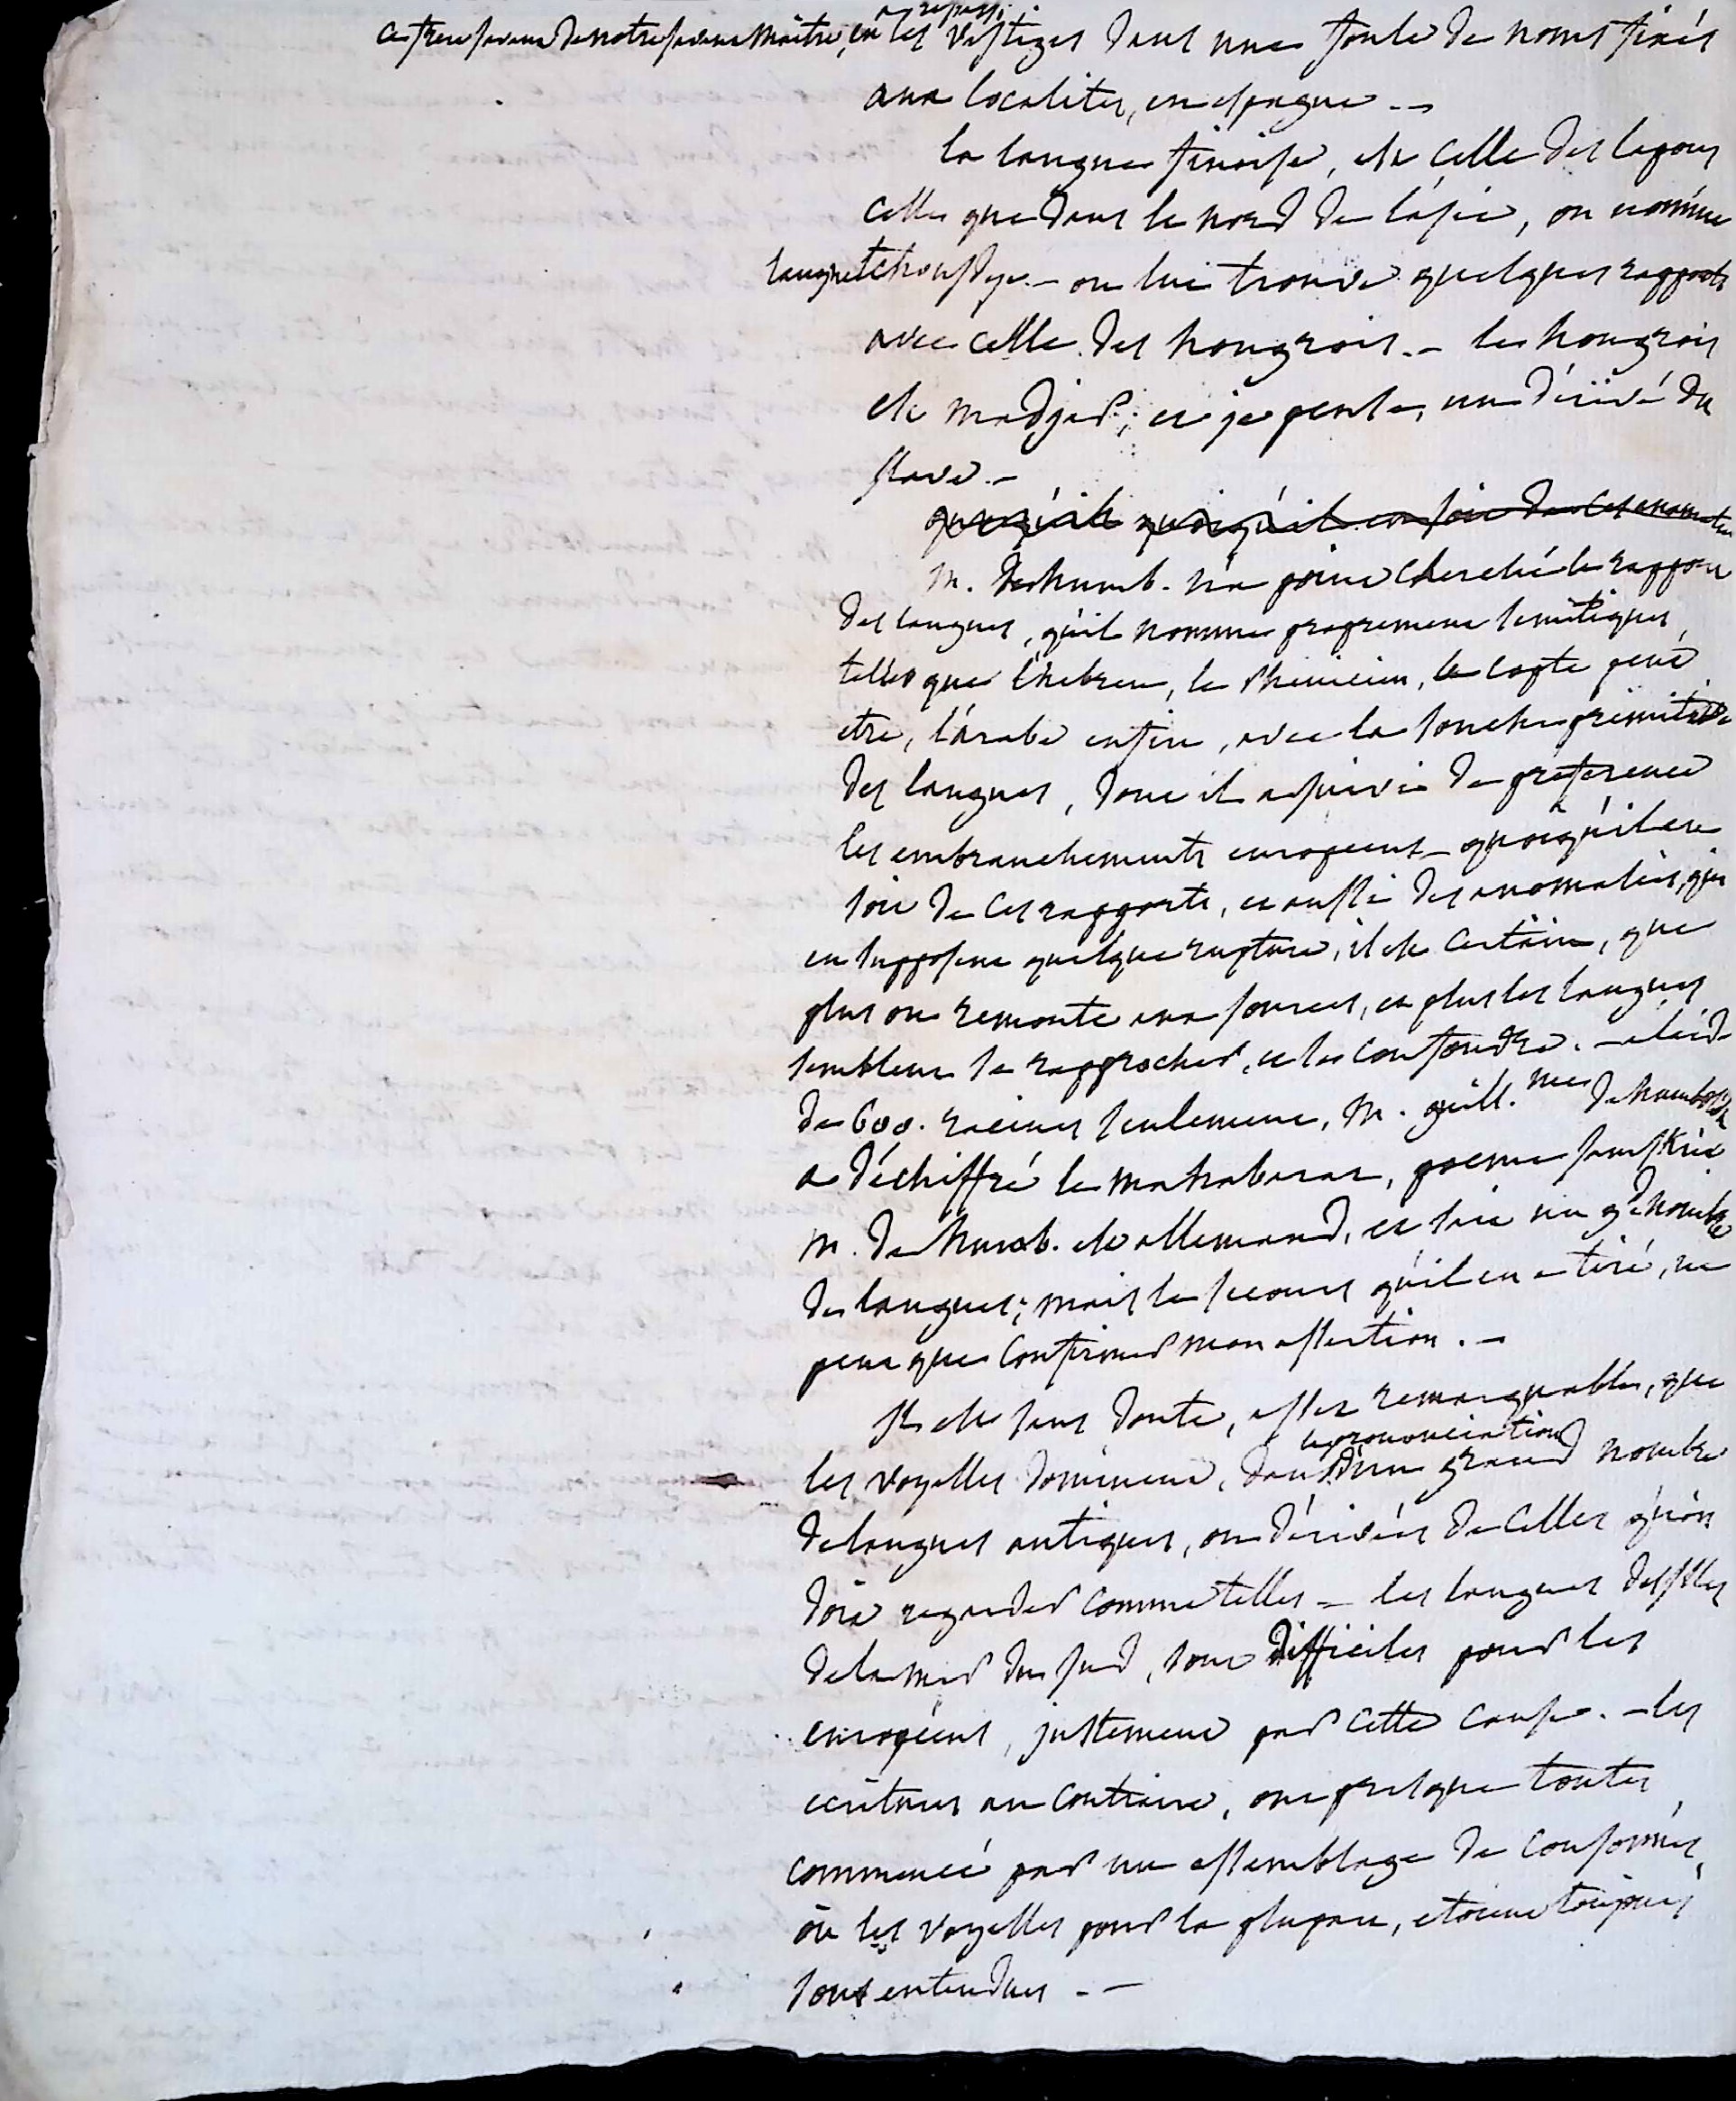 ce frere savant de notre savant maitre, en les vestiges dans une foule de noms fixés
aux localites, en espagne. -
la langue finoise, est celle des lapons
celle que dans le nord de l'asie, on nomme
langue tchoudye. - on lui trouve quelques rapports
avec celle des hongrois. - le hongrois
est madjar; et je pense, un dérivé du
slave. -
quoiqu'il quoiqu'il en soit de ces anomalies
M. de humb. n'a point cherché le rapport
des langues, qu'il nomme proprement semitiques,
telles que l'hebreu, le Phenicien, le copte peut
etre, l'arabe enfin, avec la souche primitive
des langues, dont il a suivi de preference
les embranchements europeens - quoiqu'il en
soit de ces rapports, et aussi des anomalies, qui
en supposent quelque rupture, il est certain, que
plus on remonte aux sources, et plus les langues
semblent se rapprocher, et se confondre. - a l'aide
de 600. racines seulement, M. guill.me de humboldt
a déchiffré le mahabarat, poeme sanskrit
M. de humb. est allemand, et sait un gd nombre
de langues; mais le secours qu'il en a tiré, ne
peut que confirmer mon assertion. -
Il est sans doute, assez remarquable, que
la prononciation
les voyelles dominent, dans d'un grand nombre
de langues antiques, ou dérivées de celles qu'on
doit regarder comme telles - les langues des isles
de la mer du sud, sont difficiles pour les
européens, justement par cette cause. - les
ecritures au contraire, ont presque toutes
commencé par un assemblage de consonnes,
où les voyelles pour la plupart, etoient toujours
sous entendues. -